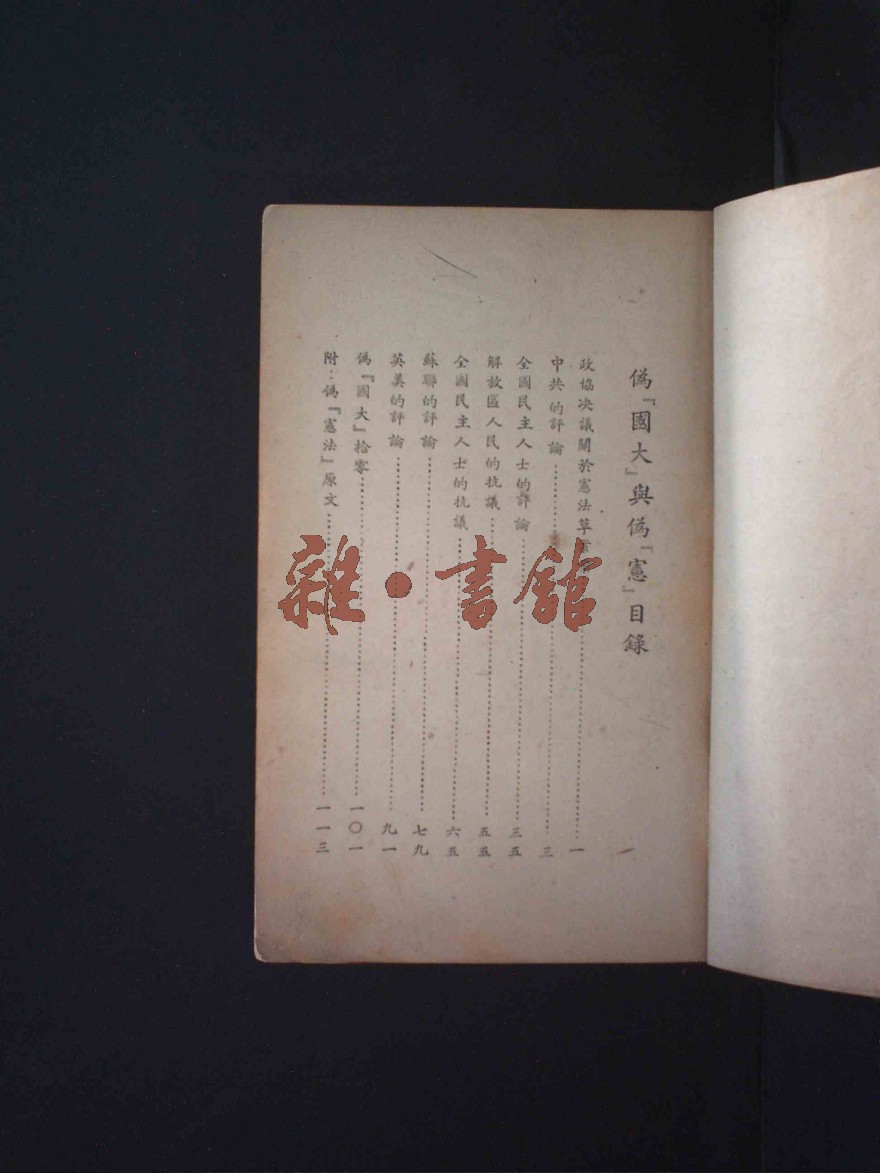 偽『國大』與偽『憲』目錄
政協決議關於憲法草⋯⋯一
中共的評論⋯⋯三
全國民主人士的評論⋯⋯三五
解放區人民的抗議⋯⋯五五
全國民主人士的抗議⋯⋯六五
蘇聯的評論⋯⋯七九
英美的評論⋯⋯九一
偽『國大』拾零⋯⋯一〇一
附：偽『憲法』原文⋯⋯一一三
雜·書館